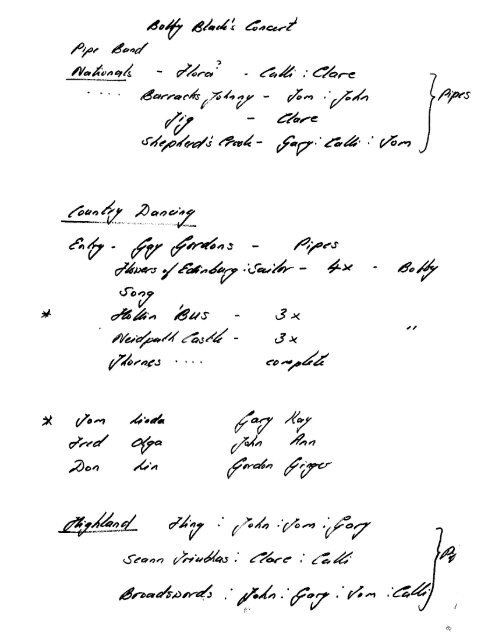 Bobby Black's Concert
Pipe Band
Nationals - Flora? - Calli : Clare
.... Barracks Johnny - Tom : John
Jig - Clare
Shepherd's Crook - Gary : Calli : Tom
Pipes
Country Dancing
Entry - Gay Gordons - Pipes
Flowers of Edinburg : Sailor - 4x - Bobby
Song
* Hollin 'Bus - 3x
Neidpath Castle - 3x "
Thornes .... complete
* Tom Linda Gary Kay
Fred Olga John Ann
Don Lin Gordon Ginger
Highland Fling : John : Tom : Gary
Seann Triubhas : Clare : Calli
Broadswords : John : Gary : Tom : Calli